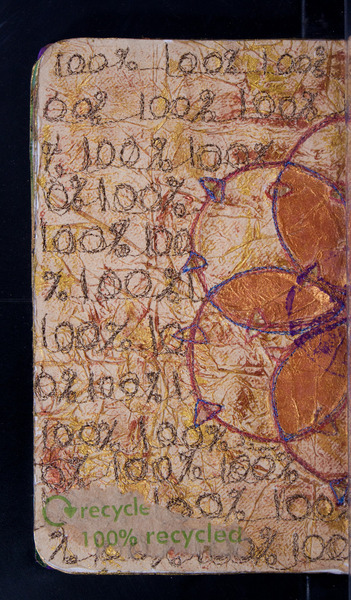 100% 100% 100%
00% 100% 100%
% 100% 100%
0% 100%
100% 100
% 100%
100% 100
0% 100% 1
100% 100%
0% 100% 100%
100% 100
recycle
100% recycled
% % 100